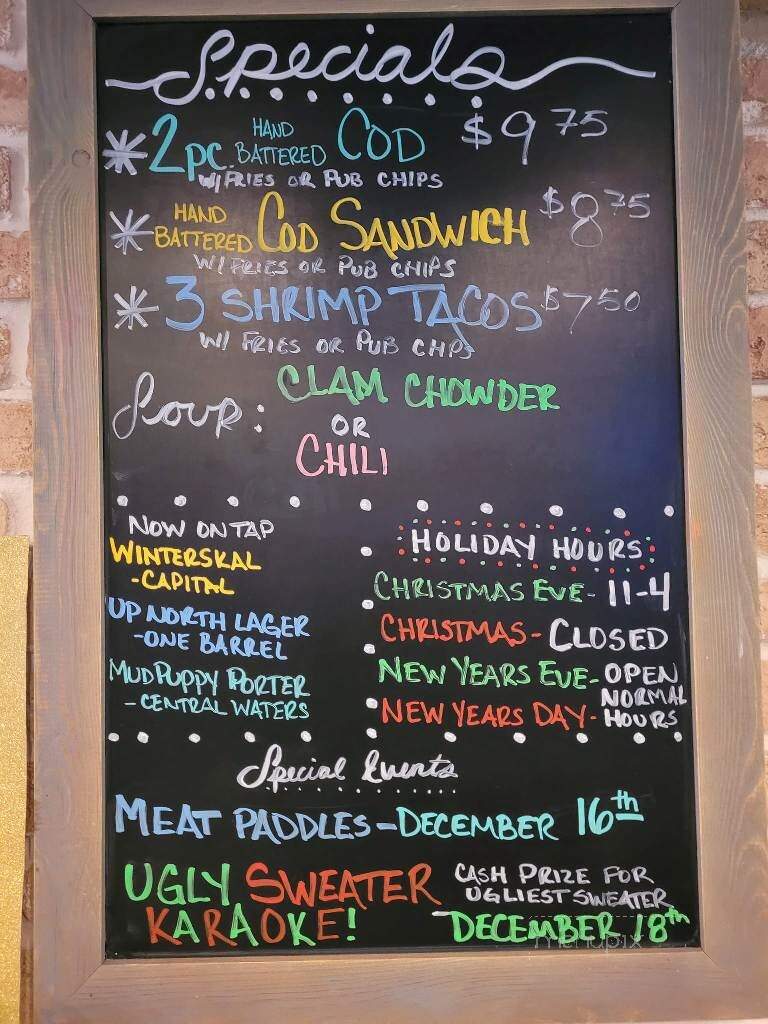 Specials
* 2pc. HAND BATTERED COD $9 75
W/ FRIES OR PUB CHIPS
* HAND BATTERED COD SANDWICH $8 75
W/ FRIES OR PUB CHIPS
* 3 SHRIMP TACOS $7 50
W/ FRIES OR PUB CHPS
Soup: CLAM CHOWDER
OR
CHILI
NOW ON TAP
WINTERSKAL
-CAPITAL
UP NORTH LAGER
-ONE BARREL
MUDPUPPY PORTER
- CENTRAL WATERS
HOLIDAY HOURS
CHRISTMAS EVE- 11-4
CHRISTMAS- CLOSED
NEW YEARS EVE- OPEN
NEW YEARS DAY- NORMAL HOURS
Special Events
MEAT PADDLES - DECEMBER 16th
UGLY SWEATER
KARAOKE!
CASH PRIZE FOR
UGLIEST SWEATER
DECEMBER 18th
menupix